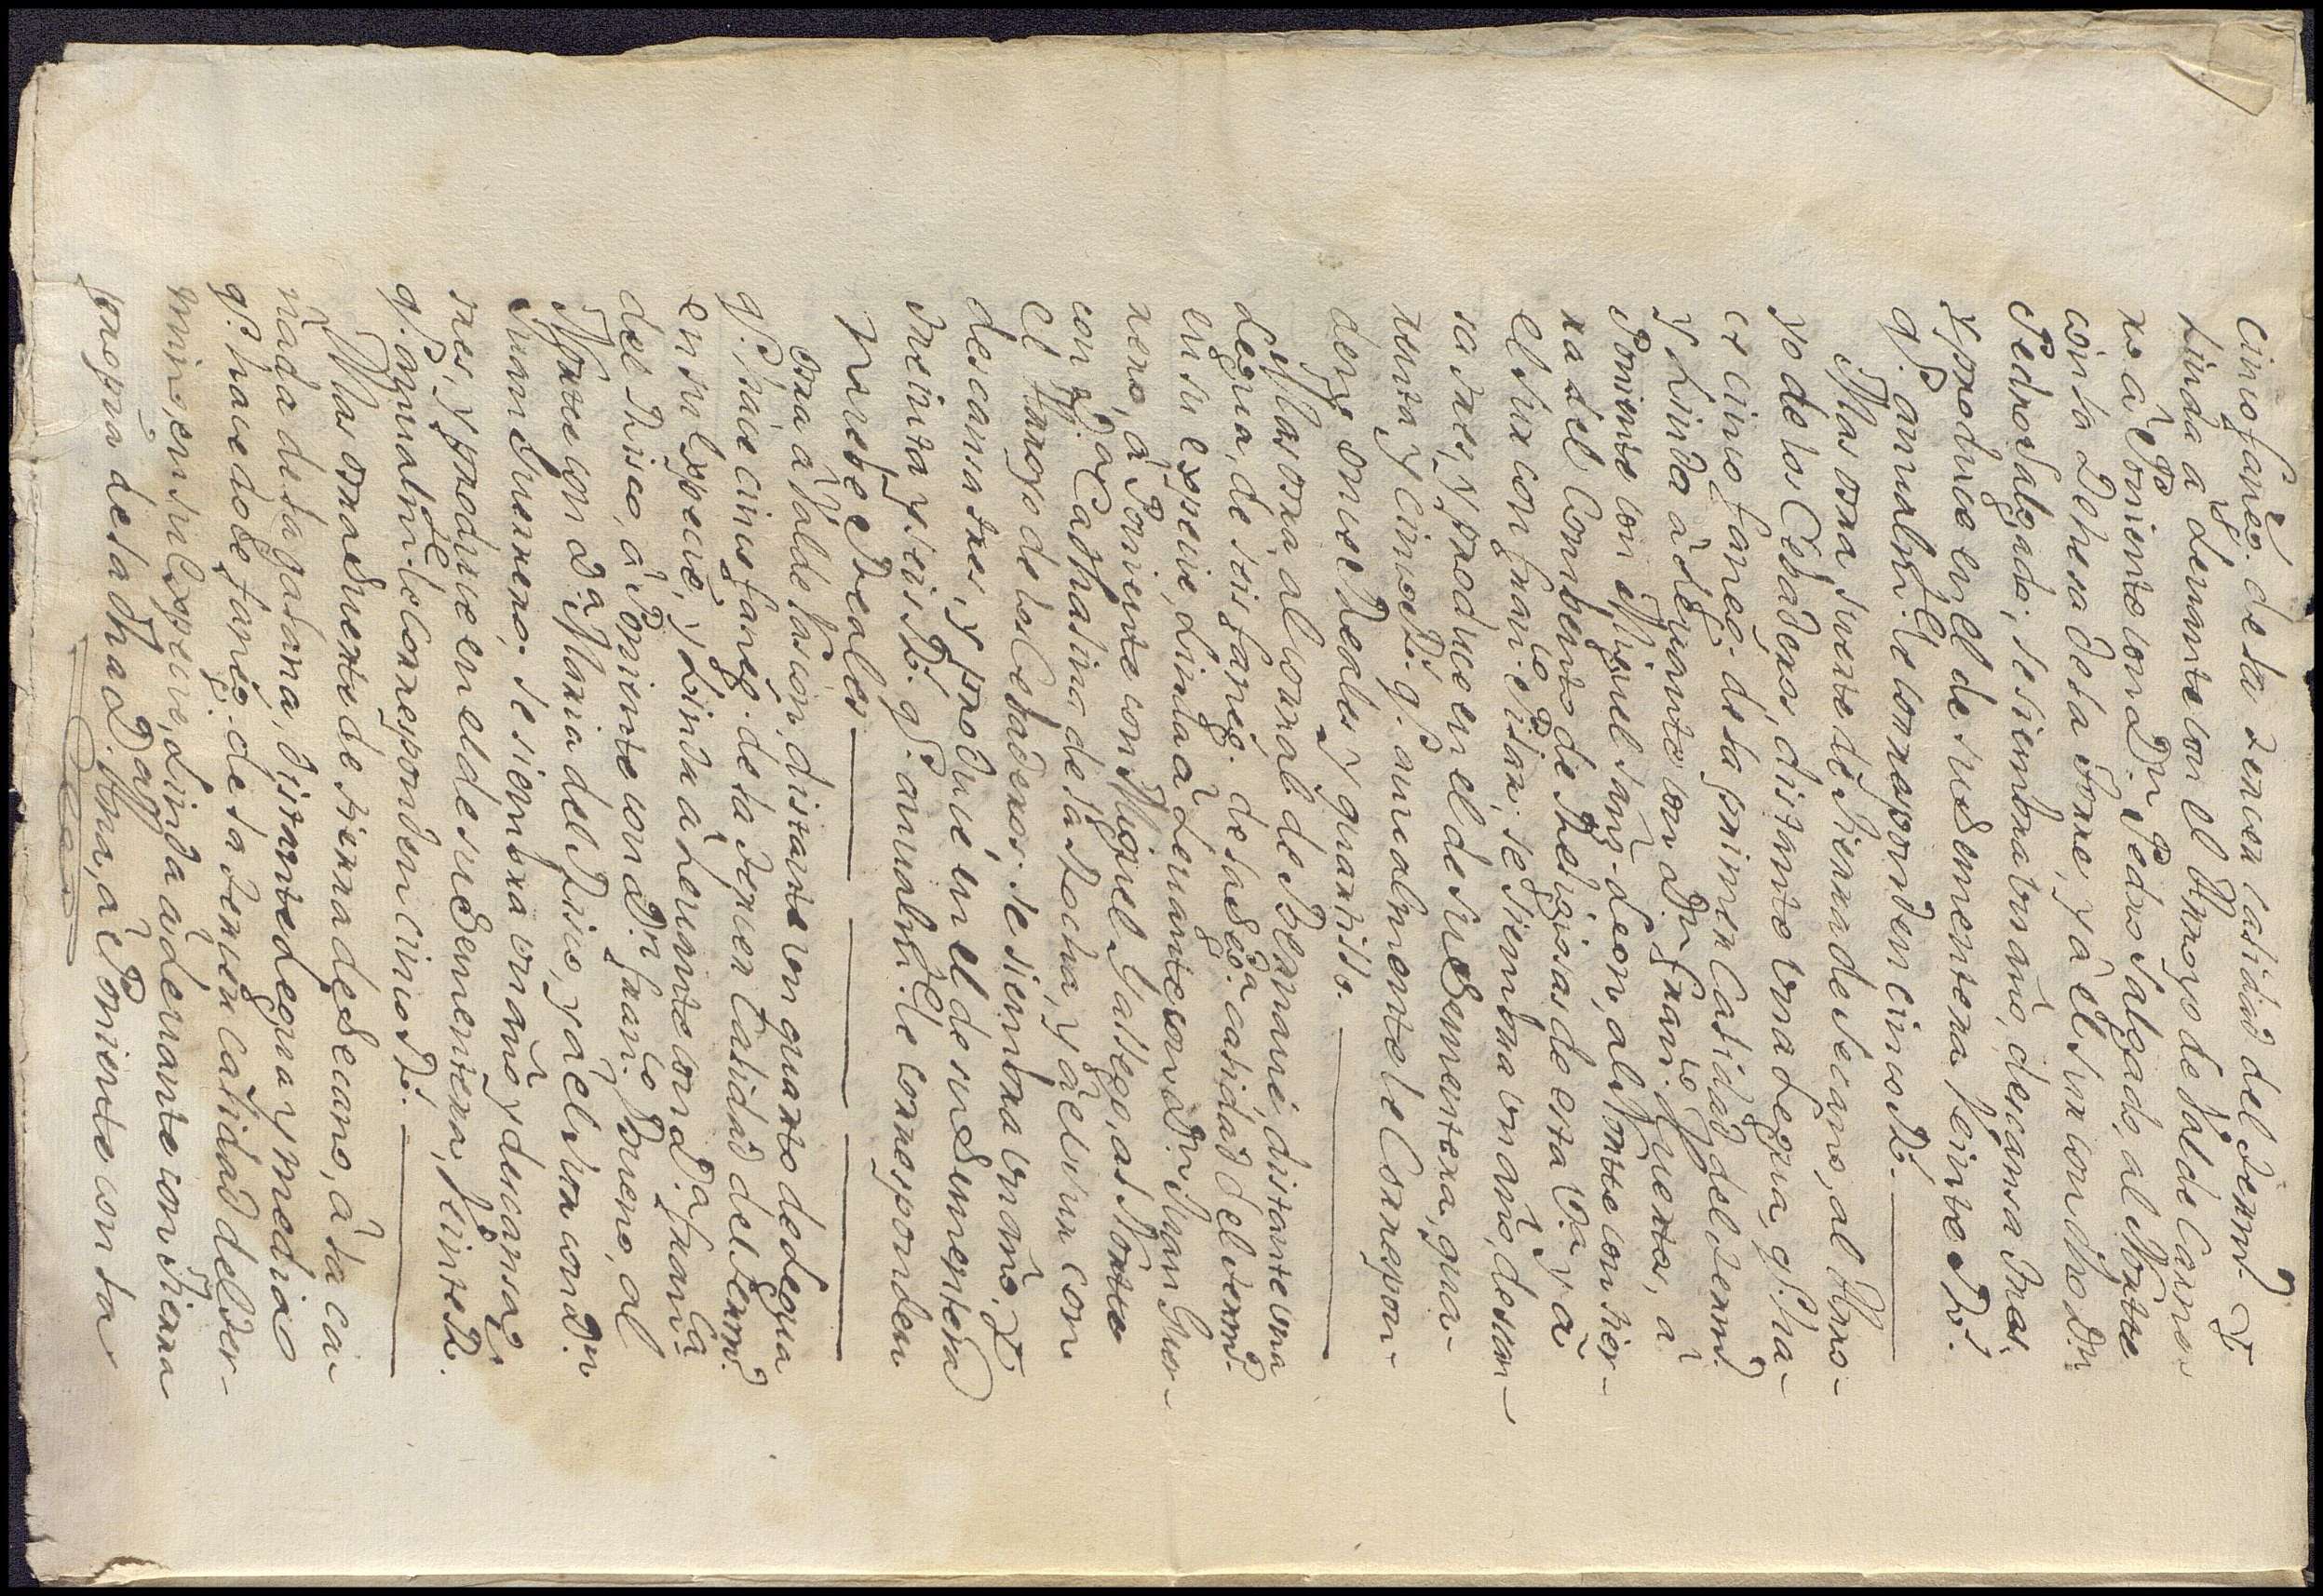 cinco faneg.s de la tercer Calidad del term.o Y
Linda à Levante con el Arroyo de Valde Carne-
ro à Poniente con D.n Pedro Salgado, al Norte
con la Dehesa de la Torre, y à el Sur con dho D.n
Pedro Salgado; se siembra un año, descansa tres.
y produce en el de su Sementera Veinte R.s
q.e anualm.te le corresponden cinco R.s
Mas otra suerte de tierra de secano, al Arro-
yo de los Cebaderos, distante una Legua, q.e ha-
ce cinco faneg.s de la primer Calidad del term.o
y Linda à Levante con D.n Fran.co Huertas, à
Poniente con Miguel Sanz. Leon, al Norte con tier-
ra del Combento de Religiosas de esta V.a y à
el Sur con Fran.co Pilar; se siembra un año, descan-
sa tres, y produce en el de su Sementera, qua-
renta y cinco R.s q.e anualmente le Correspon-
den, once Reales y quartillo.
Mas otra al corral de distante una
Legua, de seis faneg.s de la Seg.da calidad del term.o
en su especie, Linda à Levante con D.n Juan Guer-
rero, à Poniente con Miguel Gallego, al Norte
con D.a Cathalina de la Rocha, y à el Sur con
el Arroyo de los Cebaderos; se siembra un año, Y
descansa tres, y produce en el de su Sementera
treinta y seis R.s q.e anualm.te le corresponden
nuebe Reales
Otra à Valde Rascon, distante un quarto de Legua
q.e hace cinco faneg.s de la tercer Calidad del term.o
en su especie, y Linda à Levante con D.a Fran.ca
del Risco, à Poniente con D.n Juan Bueno, al
Norte con D.a Maria del Risco, y à el Sur con D.n
Juan Guerrero; se siembra un año y descansa
tres, y produce en el de su Sementera, Veinte R.s
q.e anualm.te le corresponden cinco R.s
Mas otra Suerte de tierra de Secano, à la ca-
ñada de la gitana, distante Legua y media
q.e hace doce faneg.s de la tercer Calidad del ter-
mino, en su especie, Linda à Levante con tierra
propia de la dha D.a Ana, à Poniente con la